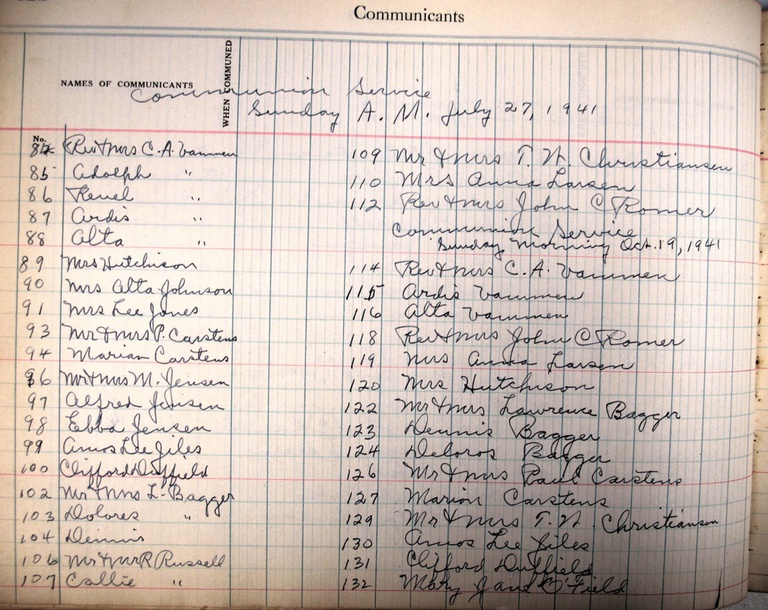 Communicants
NAMES OF COMMUNICANTS
WHEN COMMUNED
Communion Service
Sunday A. M. July 27, 1941
No.
84 Rev & Mrs C. A. Vammen
85 Adolph "
86 Reuel "
87 Ardis "
88 Alta "
89 Mrs Hutchison
90 Mrs Alta Johnson
91 Mrs Lee Jones
93 Mr & Mrs P. Carstens
94 Marian Carstens
96 Mr & Mrs M. Jensen
97 Alfred Jensen
98 Ebba Jensen
99 Amos Lee Jiles
100 Clifford Duffield
102 Mr & Mrs L. Bagger
103 Dolores "
104 Dennis
106 Mr & Mr R Russell
107 Callie "
109 Mr & Mrs T. N. Christiansen
110 Mrs Anna Larsen
112 Rev & Mrs John C Romer
Communion Service
Sunday Morning Oct. 19, 1941
114 Rev & Mrs C. A. Vammen
115 Ardis Vammen
116 Alta Vammen
118 Rev & Mrs John C Romer
119 Mrs Anna Larsen
120 Mrs Hutchison
122 Mr & Mrs Lawrence Bagger
123 Dennis Bagger
124 Deloros Bagger
126 Mr & Mrs Paul Carstens
127 Marion Carstens
129 Mr & Mrs T. N. Christiansen
130 Amos Lee Jiles
131 Clifford Duffield
132 Mary Jane O'Field